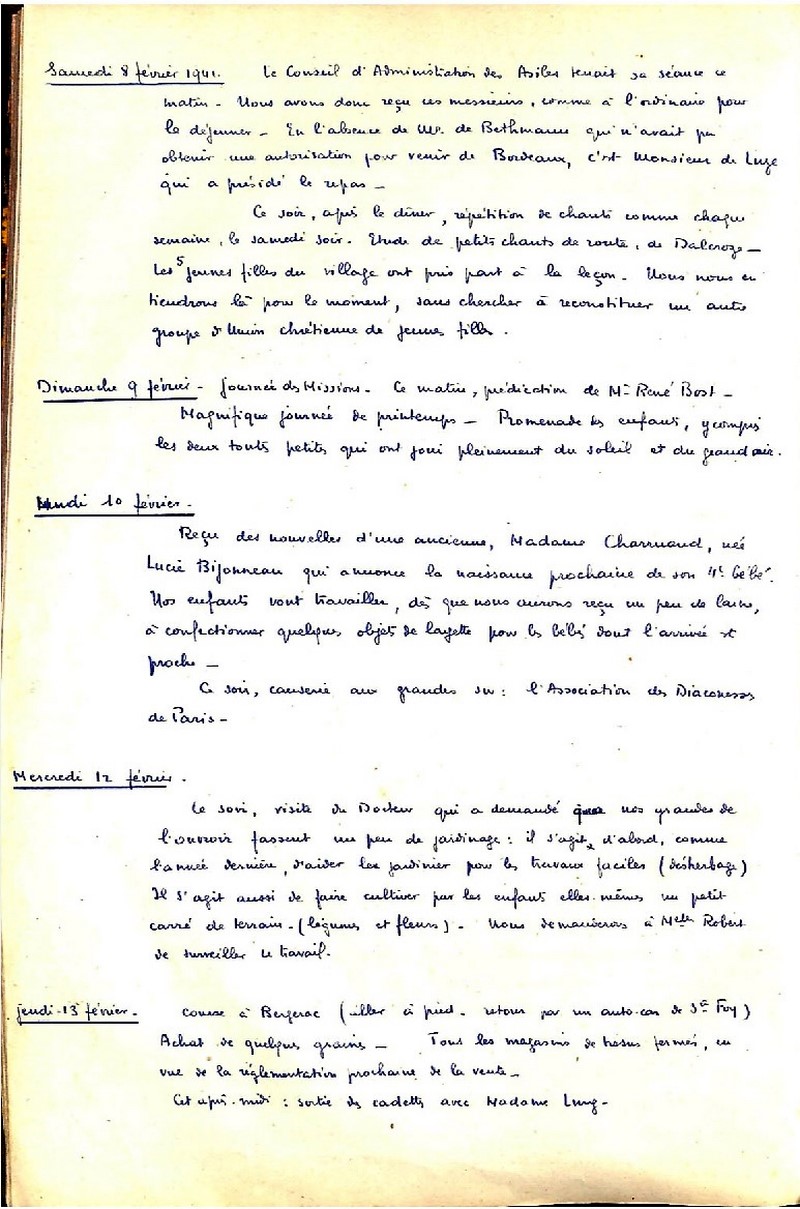 Samedi 8 février 1941. Le Conseil d'Administration des Asiles tenait sa séance ce
matin - Nous avons donc reçu ces messieurs, comme à l'ordinaire pour
le déjeuner - En l'absence de Mr. de Bethmann qui n'avait pu
obtenir une autorisation pour venir de Bordeaux, c'est Monsieur de Luze
qui a présidé le repas -
Ce soir, après le dîner, répétition de chants comme chaque
semaine, le samedi soir. Etude de petits chants de route, de Dalcroze -
Les 5 jeunes filles du village ont pris part à la leçon - Nous nous en
tiendrons là pour le moment, sans chercher à reconstituer un autre
groupe d'Union chrétienne de jeunes filles.
Dimanche 9 février - Journée des Missions - Ce matin, prédication de Mr René Bost -
Magnifique journée de printemps - Promenade des enfants, y compris
les deux toutes petites qui ont joui pleinement du soleil et du grand air.
Lundi 10 février -
Reçu des nouvelles d'une ancienne, Madame Charruaud, née
Lucie Bijonneau qui annonce la naissance prochaine de son 4e bébé.
Nos enfants vont travailler, dès que nous aurons reçu un peu de laine,
à confectionner quelques objets de layette pour les bébés dont l'arrivée est
proche -
Ce soir, causerie aux grandes sur : l'Association des Diaconesses
de Paris -
Mercredi 12 février.
Ce soir, visite du Docteur qui a demandé que nos grandes de
l'ouvroir fassent un peu de jardinage : il s'agit, d'abord, comme
l'année dernière, d'aider le jardinier pour les travaux faciles (désherbage)
Il s'agit aussi de faire cultiver par les enfants elles-mêmes un petit
carré de terrain - (légumes et fleurs) - Nous demanderons à Melle Robert
de surveiller ce travail.
Jeudi 13 février - Course à Bergerac (aller à pied - retour par un auto-car de Ste Foy)
Achat de quelques graines - Tous les magasins de tissus fermés, en
vue de la réglementation prochaine de la vente -
Cet après-midi : sortie des cadettes avec Madame Lung -